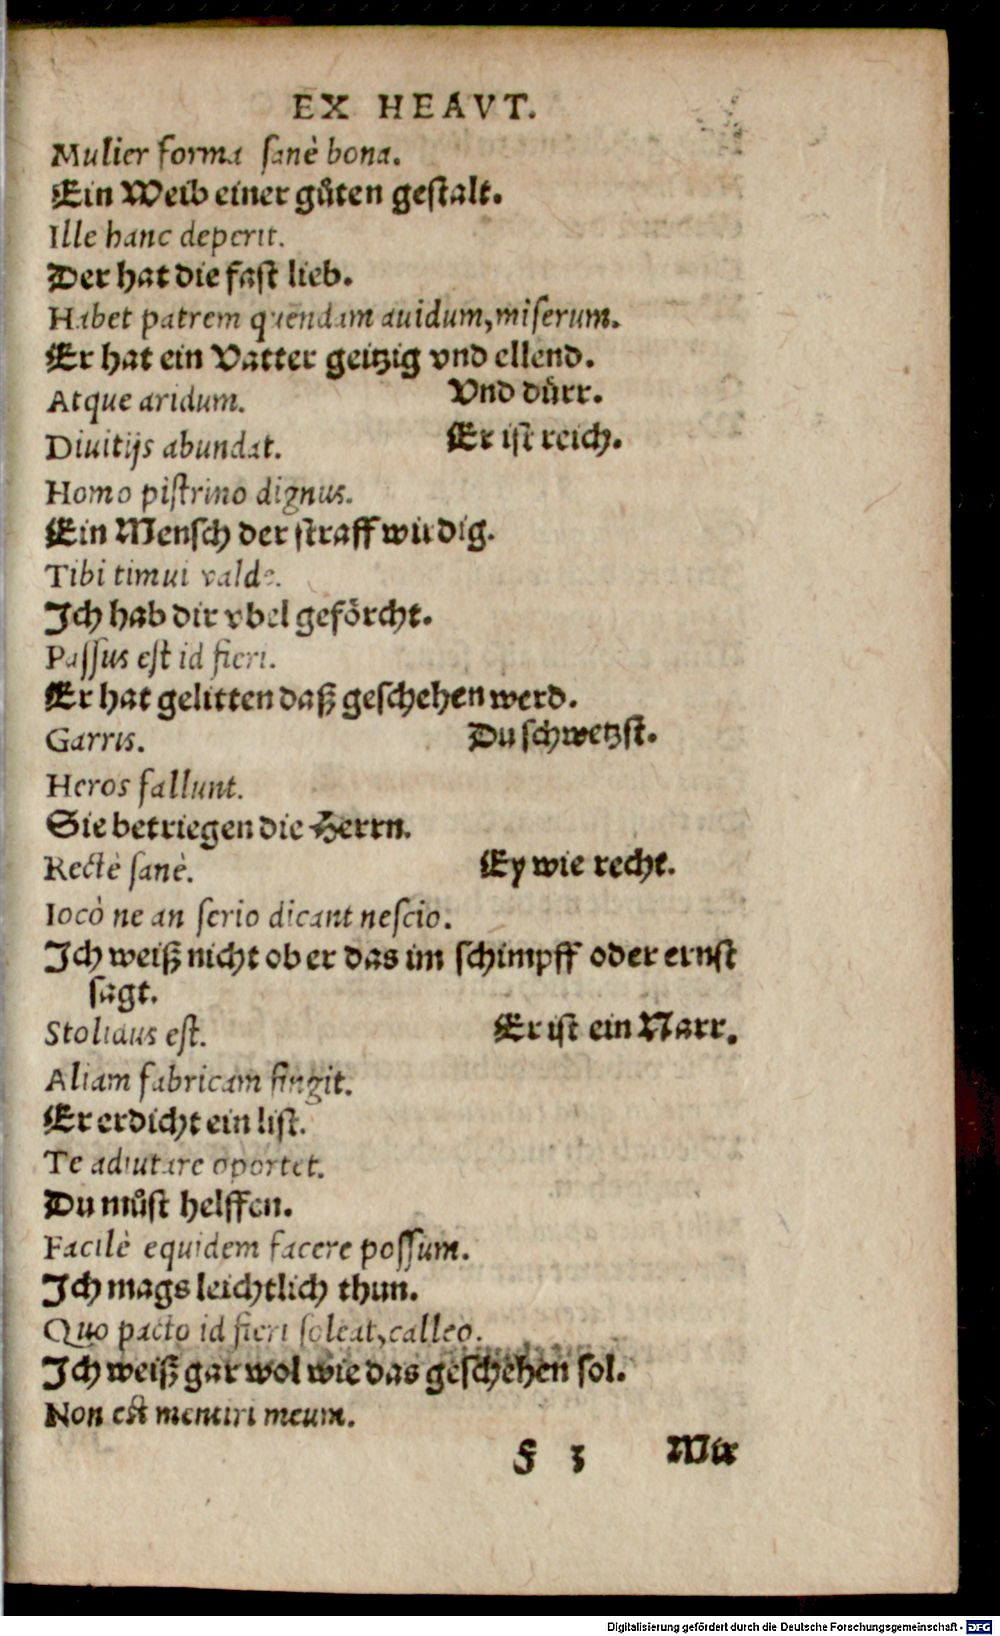 EX HEAVT.
Mulier forma sanè bona.
Ein Weib einer gůten gestalt.
Ille hanc deperit.
Der hat die fast lieb.
Habet patrem quendam auidum, miserum.
Er hat ein Vatter geitzig vnd ellend.
Atque aridum. Vnd dürr.
Diuitijs abundat. Er ist reich.
Homo pistrino dignus.
Ein Mensch der straff wirdig.
Tibi timui valde.
Ich hab dir vbel geförcht.
Passus est id fieri.
Er hat gelitten daß geschehen werd.
Garris. Du schwetzst.
Heros fallunt.
Sie betriegen die Herrn.
Rectè sanè. Ey wie recht.
Iocò ne an serio dicant nescio.
Ich weiß nicht ob er das im schimpff oder ernst
sagt.
Stolidus est. Er ist ein Narr.
Aliam fabricam fingit.
Er erdicht ein list.
Te adiutare oportet.
Du můst helffen.
Facilè equidem facere possum.
Ich mags leichtlich thun.
Quo pacto id fieri soleat, calleo.
Ich weiß gar wol wie das geschehen sol.
Non est mentiri meum.
F 3 Mir
Digitalisierung gefördert durch die Deutsche Forschungsgemeinschaft - DFG